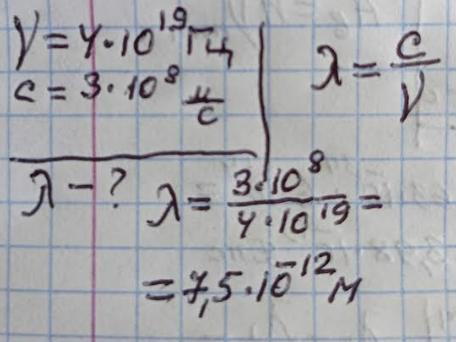 ν = 4·10¹⁹ Гц
c = 3·10⁸ м/с
λ = c/ν
λ – ?
λ = 3·10⁸/4·10¹⁹ =
= 7,5·10⁻¹² м